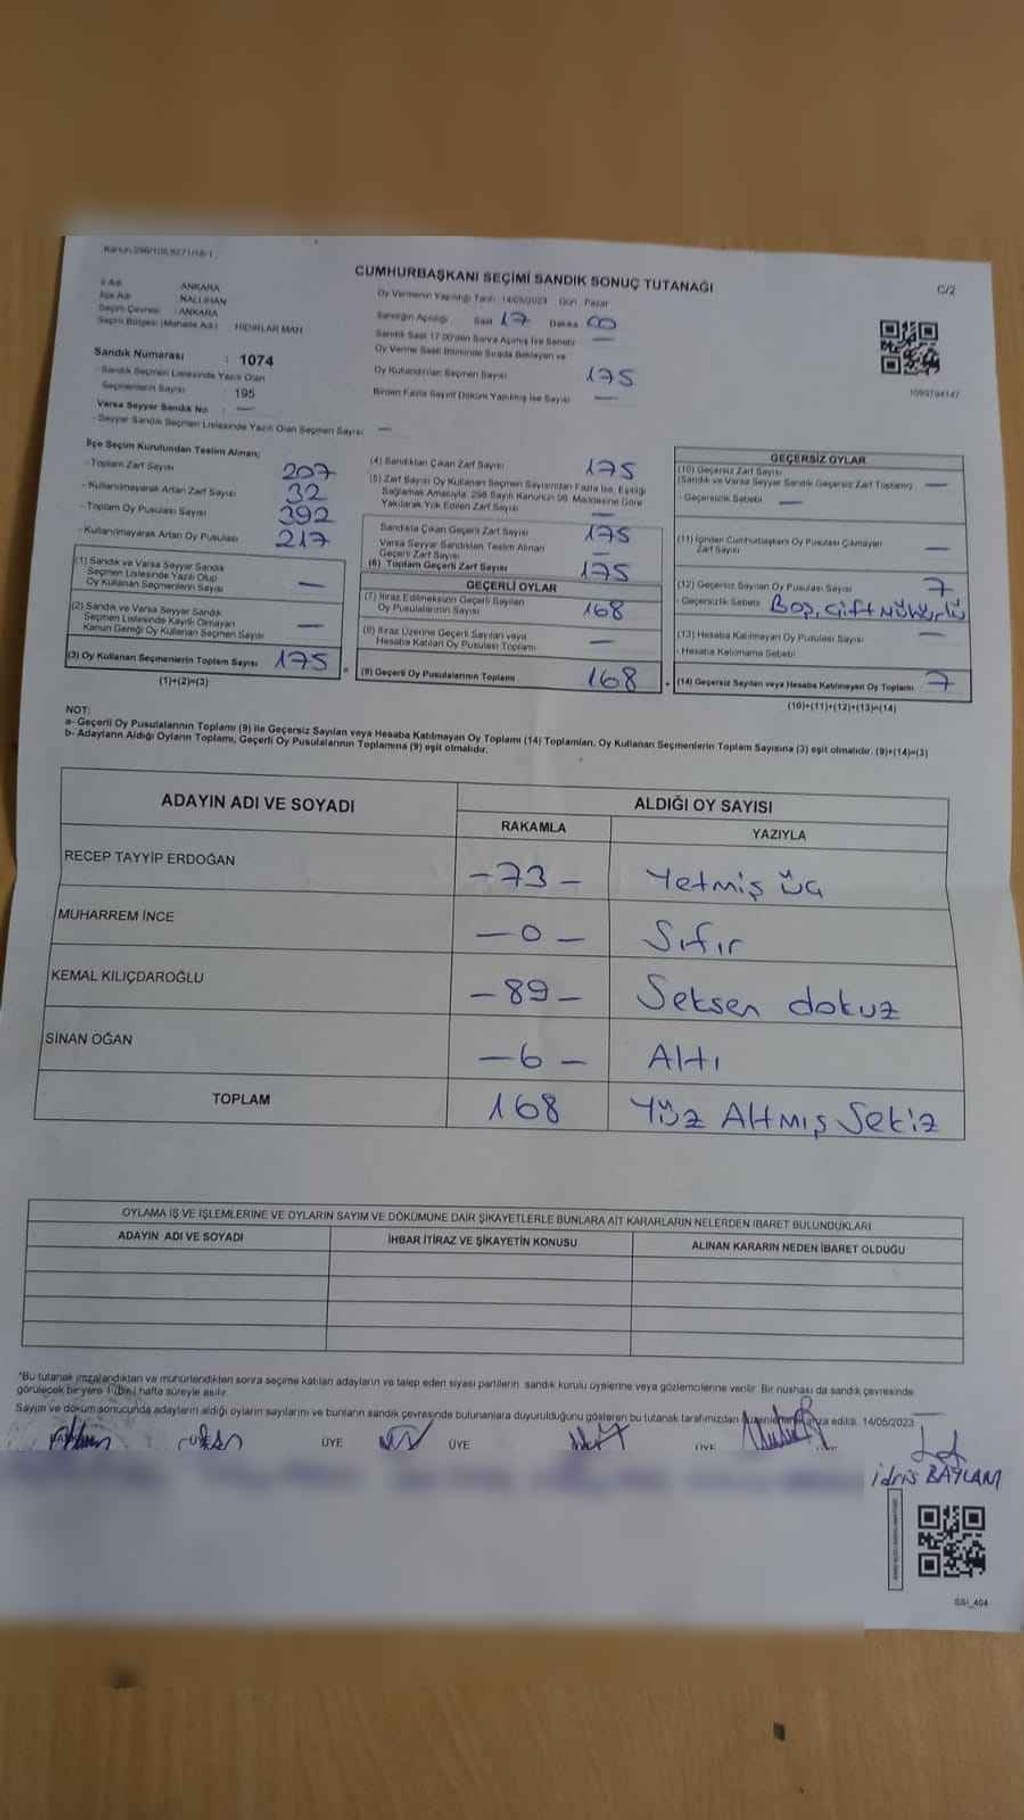 CUMHURBAŞKANI SEÇİMİ SANDIK SONUÇ TUTANAĞI
C/2
İl Adı ANKARA
İlçe Adı NALLIHAN
Seçim Çevresi : ANKARA
Seçim Bölgesi (Mahalle Adı) : HIDIRLAR MAH
Sandık Numarası : 1074
Sandık Seçmen Listesinde Yazılı Olan
Seçmenlerin Sayısı 195
Varsa Seyyar Sandık No : —
- Seyyar Sandık Seçmen Listesinde Yazılı Olan Seçmen Sayısı —
Oy Vermenin Yapıldığı Tarih 14/05/2023 Gün Pazar
Sandığın Açıldığı Saat 17 Dakika 00
Sandık Saat 17.00'den Sonra Açılmış İse Sebebi —
Oy Verme Saati Bitiminde Sırada Bekleyen ve
Oy Kullandırılan Seçmen Sayısı 175
Birden Fazla Sayım Döküm Yapılmış İse Sayısı —
1099794147
İlçe Seçim Kurulundan Teslim Alınan;
- Toplam Zarf Sayısı 207
- Kullanılmayarak Artan Zarf Sayısı 32
- Toplam Oy Pusulası Sayısı 392
- Kullanılmayarak Artan Oy Pusulası 217
(1) Sandık ve Varsa Seyyar Sandık
Seçmen Listesinde Yazılı Olup
Oy Kullanan Seçmenlerin Sayısı —
(2) Sandık ve Varsa Seyyar Sandık
Seçmen Listesinde Kayıtlı Olmayan
Kanun Gereği Oy Kullanan Seçmen Sayısı —
(3) Oy Kullanan Seçmenlerin Toplam Sayısı 175 =
(1)+(2)=(3)
(4) Sandıktan Çıkan Zarf Sayısı 175
(5) Zarf Sayısı Oy Kullanan Seçmen Sayısından Fazla İse, Eşitliği
Sağlamak Amacıyla, 298 Sayılı Kanunun 98. Maddesine Göre
Yakılarak Yok Edilen Zarf Sayısı —
Sandıkta Çıkan Geçerli Zarf Sayısı 175
Varsa Seyyar Sandıktan Teslim Alınan
Geçerli Zarf Sayısı —
(6) Toplam Geçerli Zarf Sayısı 175
GEÇERLİ OYLAR
(7) İtiraz Edilmeksizin Geçerli Sayılan
Oy Pusulalarının Sayısı 168
(8) İtiraz Üzerine Geçerli Sayılan veya
Hesaba Katılan Oy Pusulası Toplamı —
(9) Geçerli Oy Pusulalarının Toplamı 168 +
GEÇERSİZ OYLAR
(10) Geçersiz Zarf Sayısı
(Sandık ve Varsa Seyyar Sandık Geçersiz Zarf Toplamı) —
- Geçersizlik Sebebi —
(11) İçinden Cumhurbaşkanı Oy Pusulası Çıkmayan
Zarf Sayısı —
(12) Geçersiz Sayılan Oy Pusulası Sayısı 7
- Geçersizlik Sebebi Boş, Çift Mühürlü
(13) Hesaba Katılmayan Oy Pusulası Sayısı —
- Hesaba Katılmama Sebebi
(14) Geçersiz Sayılan veya Hesaba Katılmayan Oy Toplamı 7
(10)+(11)+(12)+(13)=(14)
NOT:
a- Geçerli Oy Pusulalarının Toplamı (9) ile Geçersiz Sayılan veya Hesaba Katılmayan Oy Toplamı (14) Toplamları, Oy Kullanan Seçmenlerin Toplam Sayısına (3) eşit olmalıdır. (9)+(14)=(3)
b- Adayların Aldığı Oyların Toplamı, Geçerli Oy Pusulalarının Toplamına (9) eşit olmalıdır.
ADAYIN ADI VE SOYADI ALDIĞI OY SAYISI
RAKAMLA YAZIYLA
RECEP TAYYİP ERDOĞAN -73- Yetmiş üç
MUHARREM İNCE -0- Sıfır
KEMAL KILIÇDAROĞLU -89- Seksen dokuz
SİNAN OĞAN -6- Altı
TOPLAM 168 Yüz Altmış Sekiz
OYLAMA İŞ VE İŞLEMLERİNE VE OYLARIN SAYIM VE DÖKÜMÜNE DAİR ŞİKAYETLERLE BUNLARA AİT KARARLARIN NELERDEN İBARET BULUNDUKLARI
ADAYIN ADI VE SOYADI İHBAR İTİRAZ VE ŞİKAYETİN KONUSU ALINAN KARARIN NEDEN İBARET OLDUĞU
*Bu tutanak imzalandıktan ve mühürlendikten sonra seçime katılan adayların ve talep eden siyasi partilerin sandık kurulu üyelerine veya gözlemcilerine verilir. Bir nüshası da sandık çevresinde
görülecek bir yere 1 (bir) hafta süreyle asılır.
Sayım ve döküm sonucunda adayların aldığı oyların sayılarını ve bunların sandık çevresinde bulunanlara duyurulduğunu gösteren bu tutanak tarafımızdan imza edildi. 14/05/2023
ÜYE ÜYE ÜYE
idris BAYLAM
SSI_404